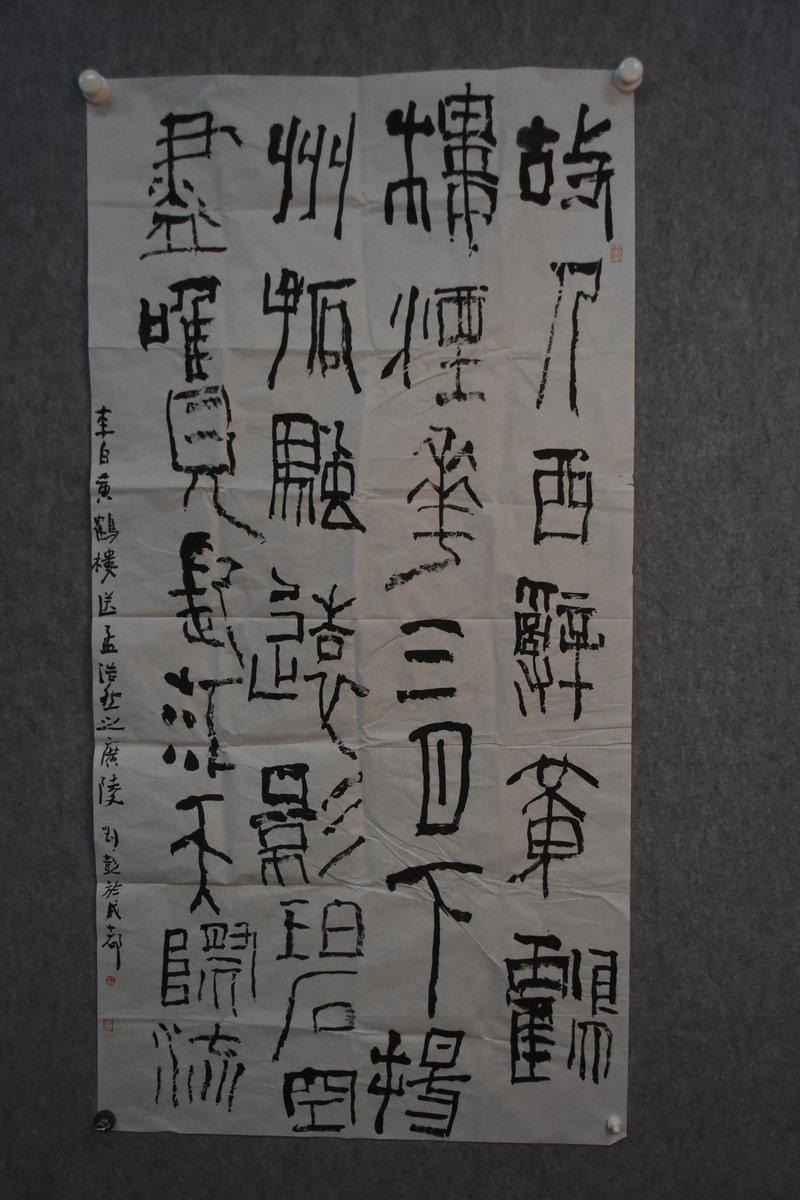 故人西辭黄鶴
樓煙華三月下揚
州孤颿遠影碧空
盡唯見長江天際流
李白黄鶴樓送孟浩然之廣陵 劉彭於成都